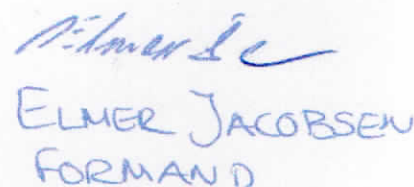 ELMER JACOBSEN
FORMAND